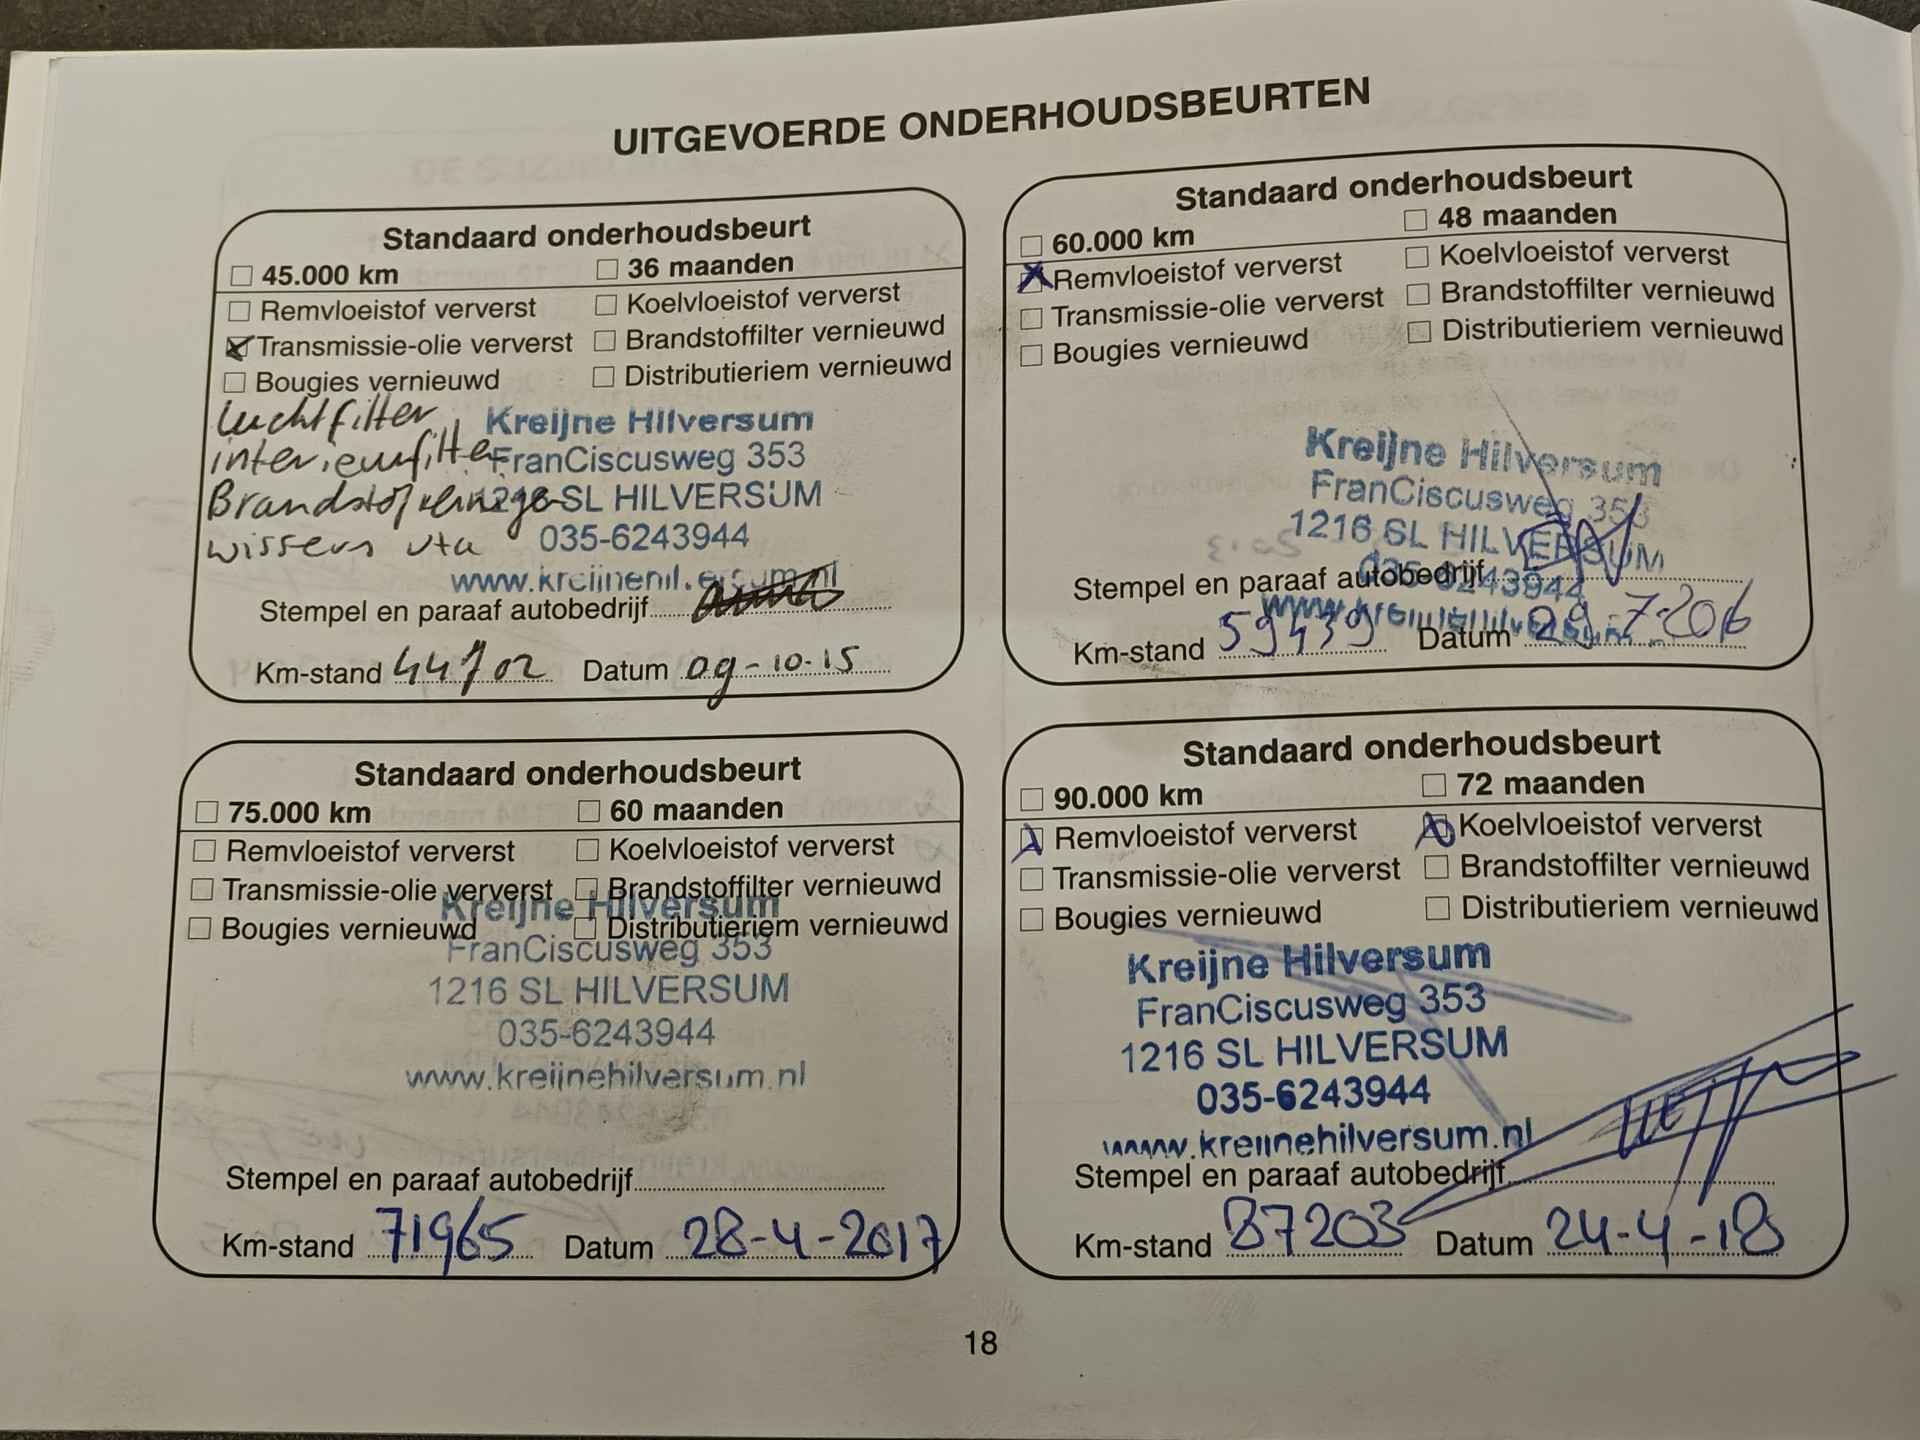 UITGEVOERDE ONDERHOUDSBEURTEN
Standaard onderhoudsbeurt
45.000 km 36 maanden
Remvloeistof ververst Koelvloeistof ververst
Transmissie-olie ververst Brandstoffilter vernieuwd
Bougies vernieuwd Distributieriem vernieuwd
Luchtfilter
interieurfilter
Brandstofreiniger
wissers v+a
Kreijne Hilversum
FranCiscusweg 353
1216 SL HILVERSUM
035-6243944
www.kreijnehilversum.nl
Stempel en paraaf autobedrijf
Km-stand 44702 Datum 09-10-15
Standaard onderhoudsbeurt
60.000 km 48 maanden
Remvloeistof ververst Koelvloeistof ververst
Transmissie-olie ververst Brandstoffilter vernieuwd
Bougies vernieuwd Distributieriem vernieuwd
Kreijne Hilversum
FranCiscusweg 353
1216 SL HILVERSUM
035-6243944
www.kreijnehilversum.nl
Stempel en paraaf autobedrijf
Km-stand 59439 Datum 29-7-2016
Standaard onderhoudsbeurt
75.000 km 60 maanden
Remvloeistof ververst Koelvloeistof ververst
Transmissie-olie ververst Brandstoffilter vernieuwd
Bougies vernieuwd Distributieriem vernieuwd
Kreijne Hilversum
FranCiscusweg 353
1216 SL HILVERSUM
035-6243944
www.kreijnehilversum.nl
Stempel en paraaf autobedrijf
Km-stand 71965 Datum 28-4-2017
Standaard onderhoudsbeurt
90.000 km 72 maanden
Remvloeistof ververst Koelvloeistof ververst
Transmissie-olie ververst Brandstoffilter vernieuwd
Bougies vernieuwd Distributieriem vernieuwd
Kreijne Hilversum
FranCiscusweg 353
1216 SL HILVERSUM
035-6243944
www.kreijnehilversum.nl
Stempel en paraaf autobedrijf
Km-stand 87203 Datum 24-4-18
18